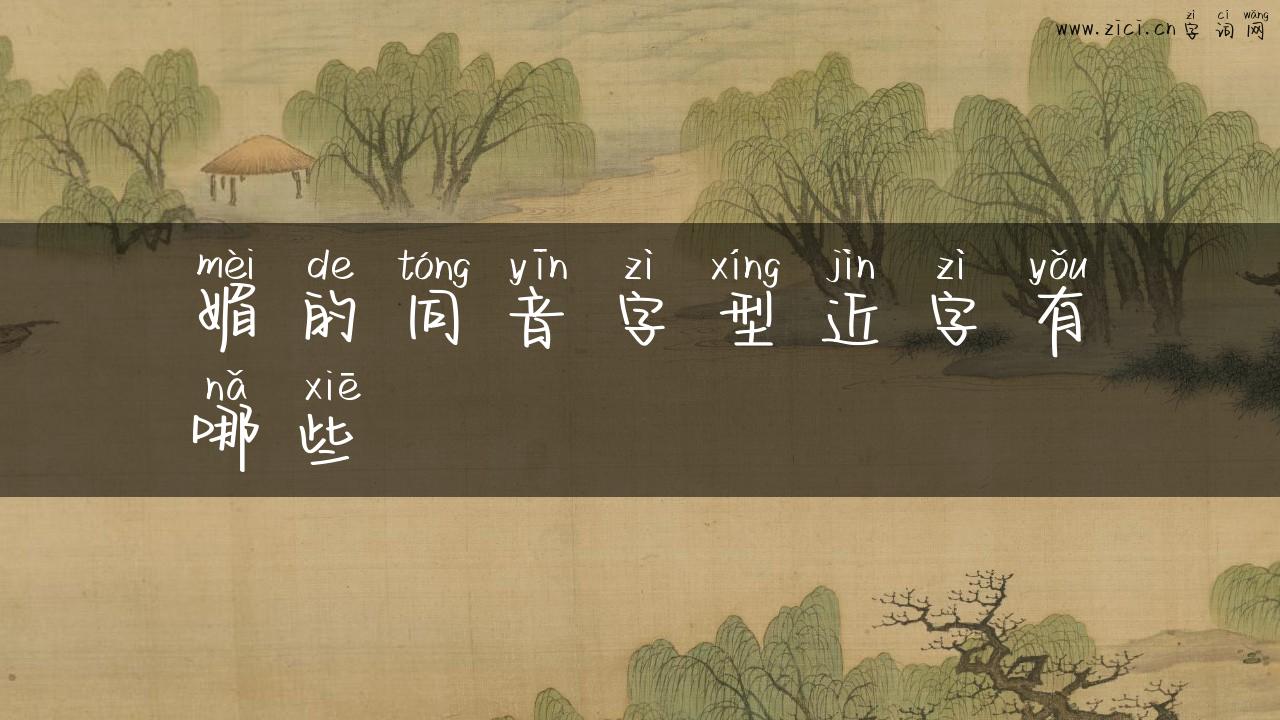 zì cí wǎng
www.zici.cn 字词网
mèi de tóng yīn zì xíng jìn zì yǒu
媚的同音字型近字有
nǎ xiē
哪些